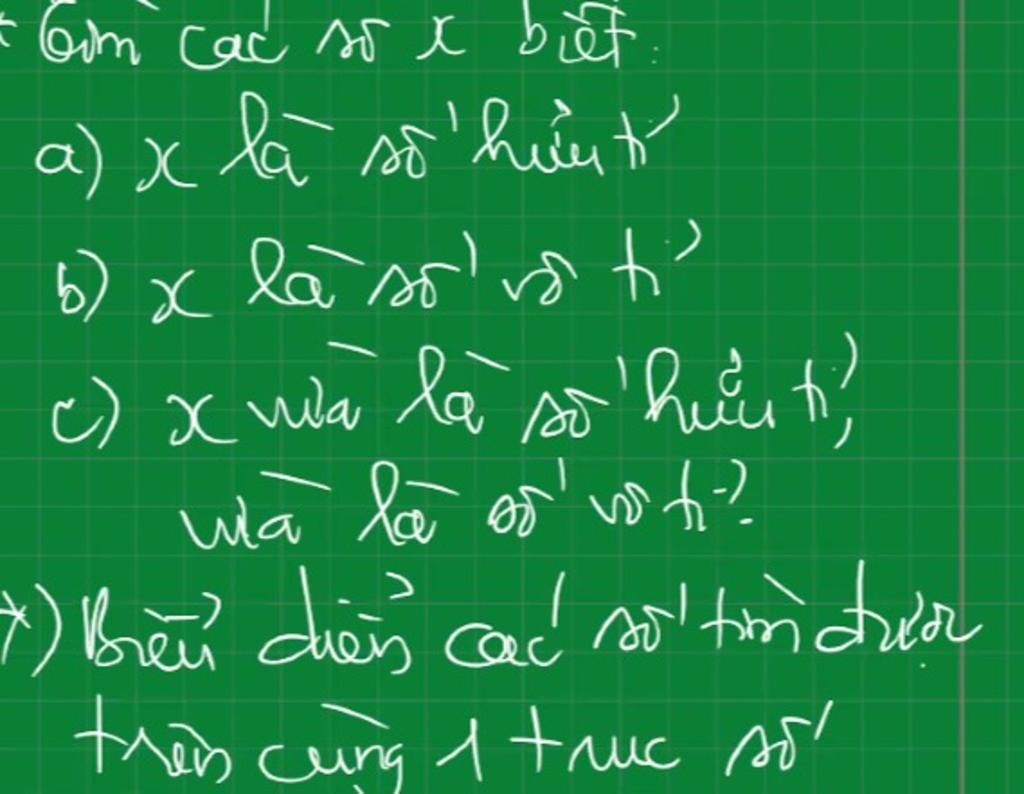 * Tìm các số x biết.
a) x là số hữu tỉ
b) x là số vô tỉ
c) x vừa là số hữu tỉ,
vừa là số vô tỉ?
*) Biểu diễn các số tìm được
trên cùng 1 trục số